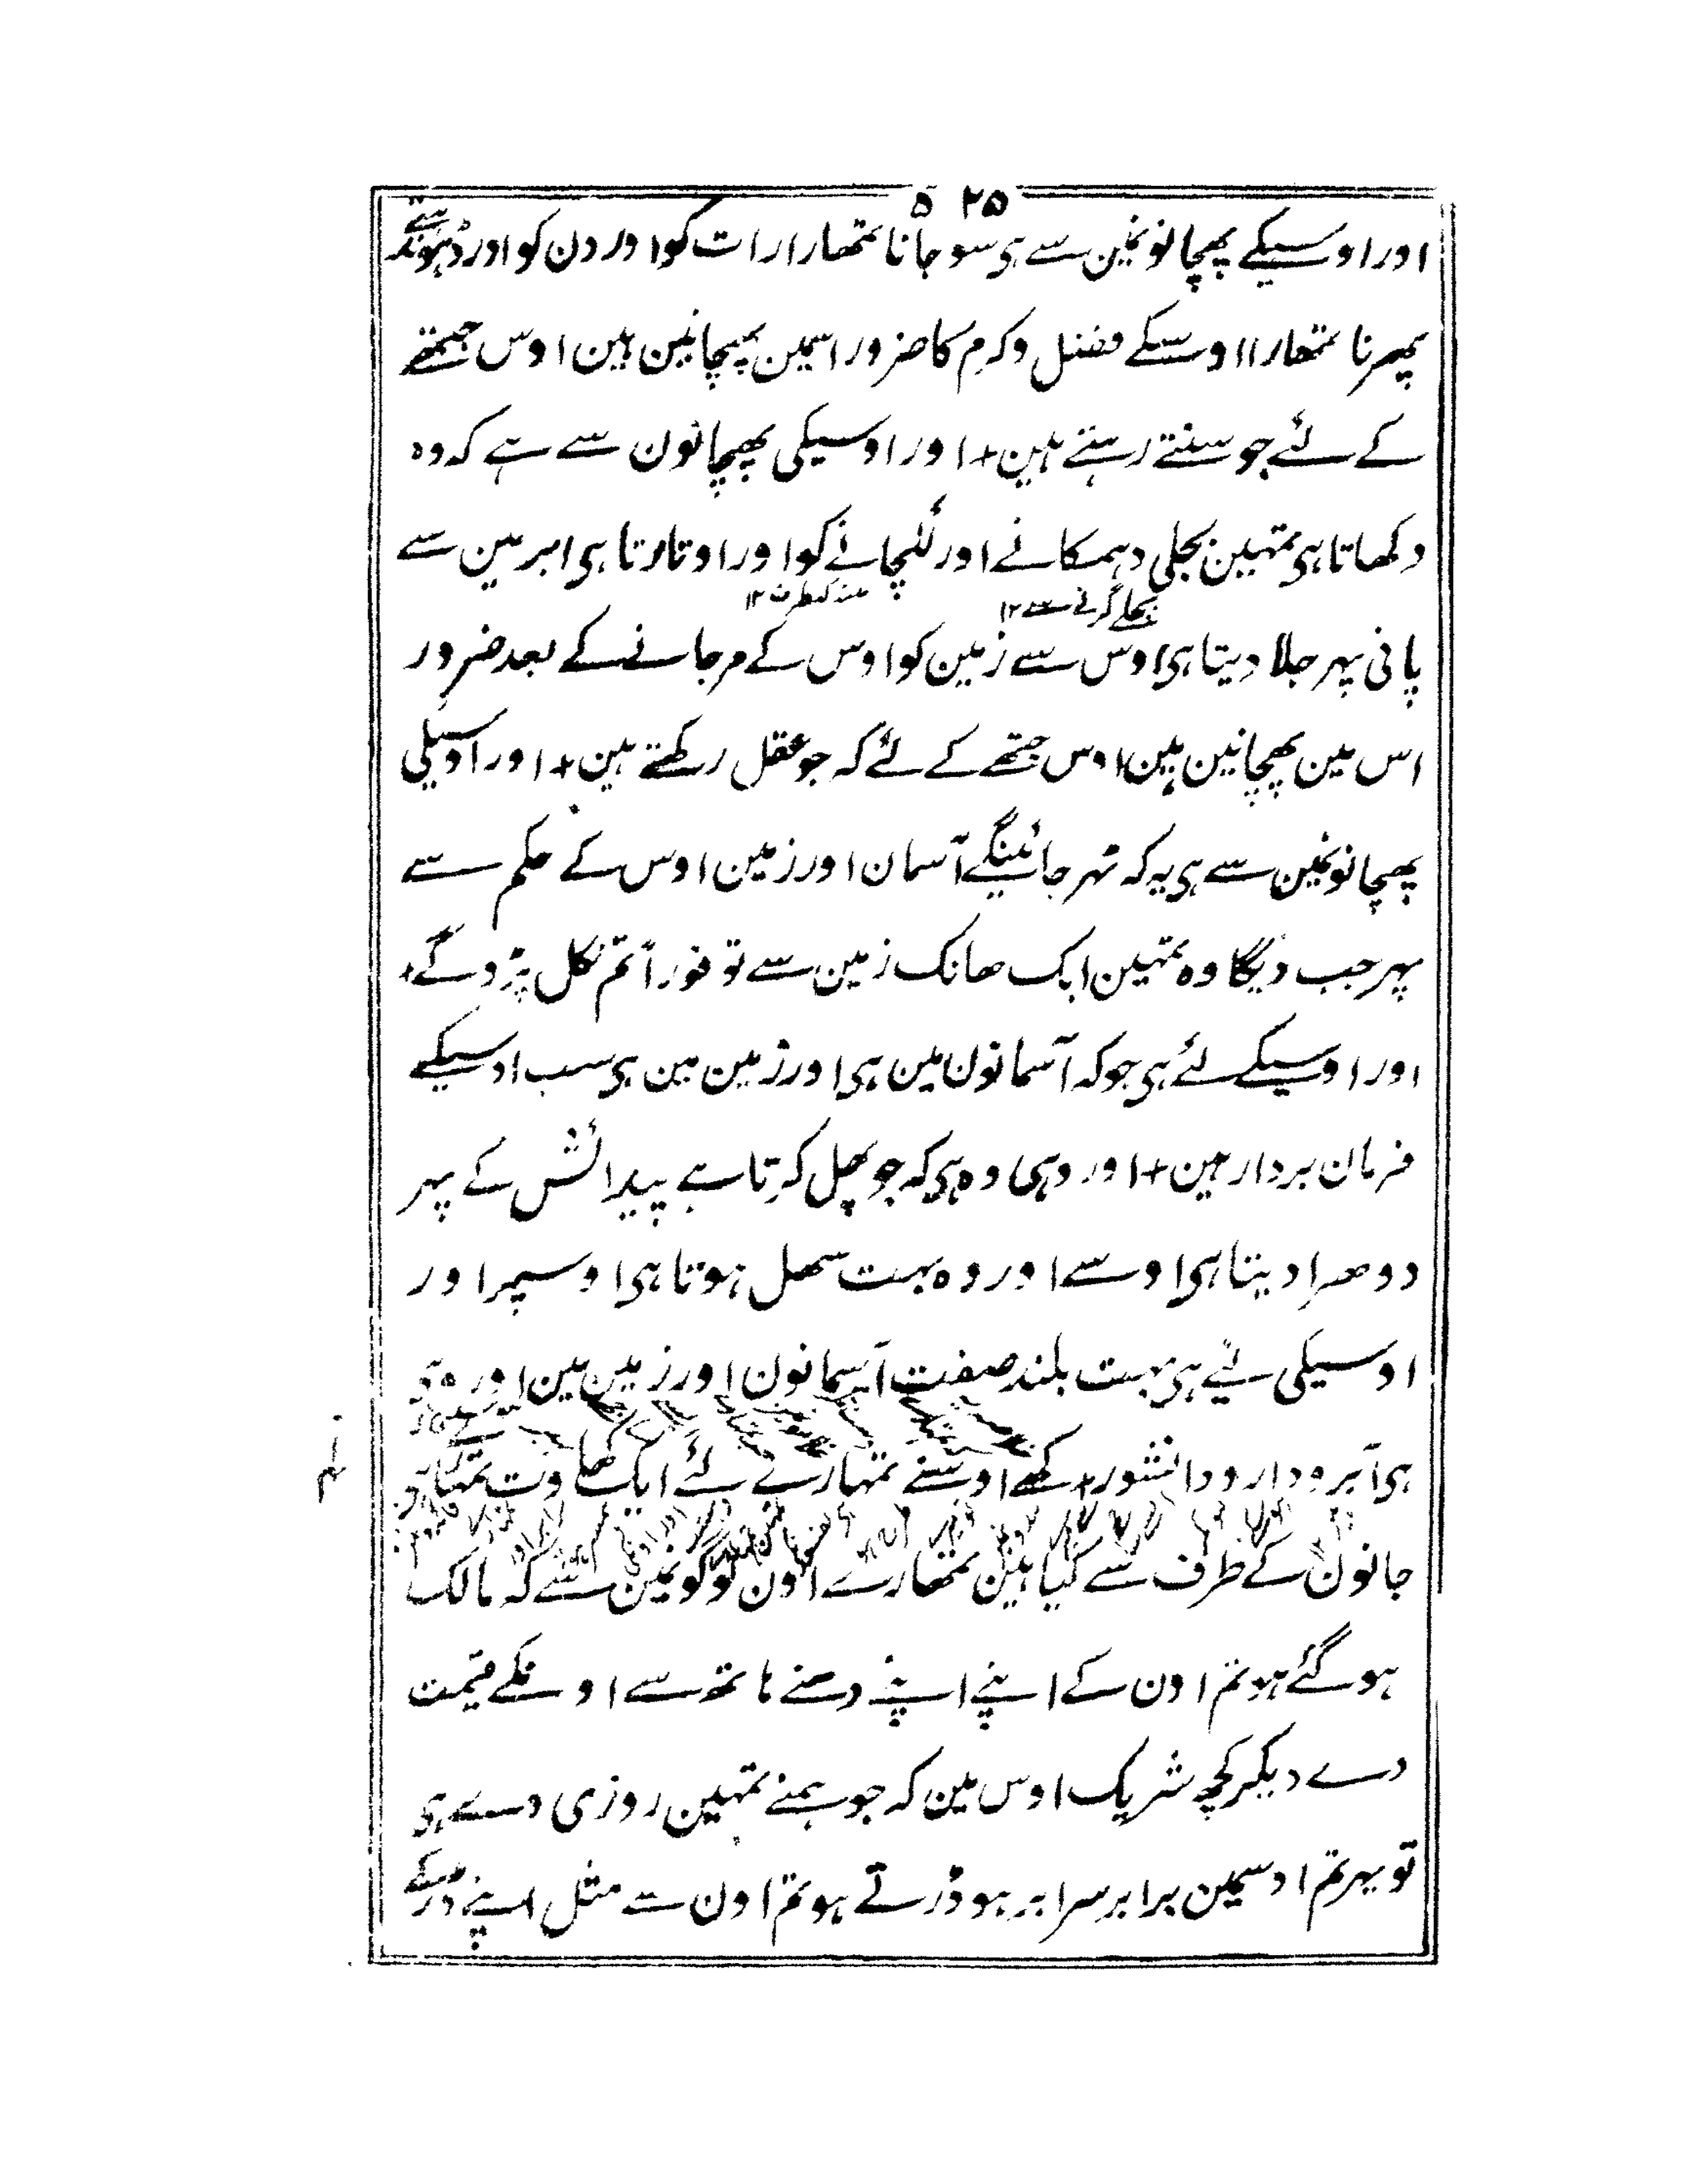 ۵ ۲۵
اور اوسیکے پھچانونمین سے ہی سو جانا تمھارا رات کو اور دن کو اور ڈہونڈتے
پھرنا تمھارا اوسکے فضل وکرم کا ضرور اسمین پھچانین ہین اوس جتھے
کے لئے جو سنتے رہتے ہین + اور اوسیکی پھچانون سے ہے کہ وہ
دکھاتا ہی تمہین بجلی دہمکانے اور للچانے کو اور اوتارتا ہی ابر مین سے
بجلے گرنے سے ۱۲
پانی پہر جلا دیتا ہی اوس سے زمین کو اوس کے مرجانے کے بعد ضرور
اس مین پھچانین ہین اوس جتھے کے لئے کہ جو عقل رکھتے ہین + اور اوسیکی
پھچانونمین سے ہی یہ کہ ٹہر جائینگے آسمان اور زمین اوس کے حکم سے
پہر جب دیگا وہ تمہین ایک ھانک زمین سے تو فوراً تم نکل پڑوگے +
اور اوسیکے لئے ہی جو کہ آسمانون مین ہی اور زمین مین ہی سب اوسیکے
فرمان بردار ہین + اور وہی وہ ہی کہ جو پھل کرتا ہے پیدائش کے پہر
دوھرا دیتا ہی اوسے اور وہ بہت سھل ہوتا ہی اوسپر اور
اوسیکی لیے ہی بہت بلند صفت آسمانون اور زمین مین اور وہ
ہی آبرودار و دانشور + کھے اوسنے تمہارے لئے ایک کھاوت تمھاری
جانون کے طرف سے کیا ہین تمھارے اون لوگونمین سے کہ مالک
ہوگئے ہو تم اون کے اپنے اپنے دھنے ہاتھ سے اونکے قیمت
دے دیکر کچھ شریک اوس مین کہ جو ہمنے تمہین روزی دے ہی
تو پہر تم اوسمین برابر سرابر ہو ڈرتے ہو تم اون سے مثل اپنے ڈرکے